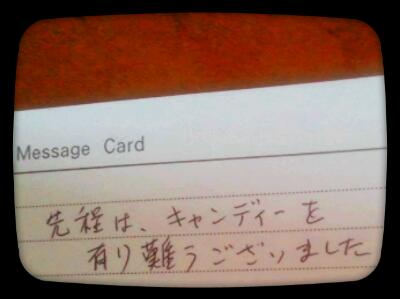 Message Card
先程は、キャンディーを
有り難うございました